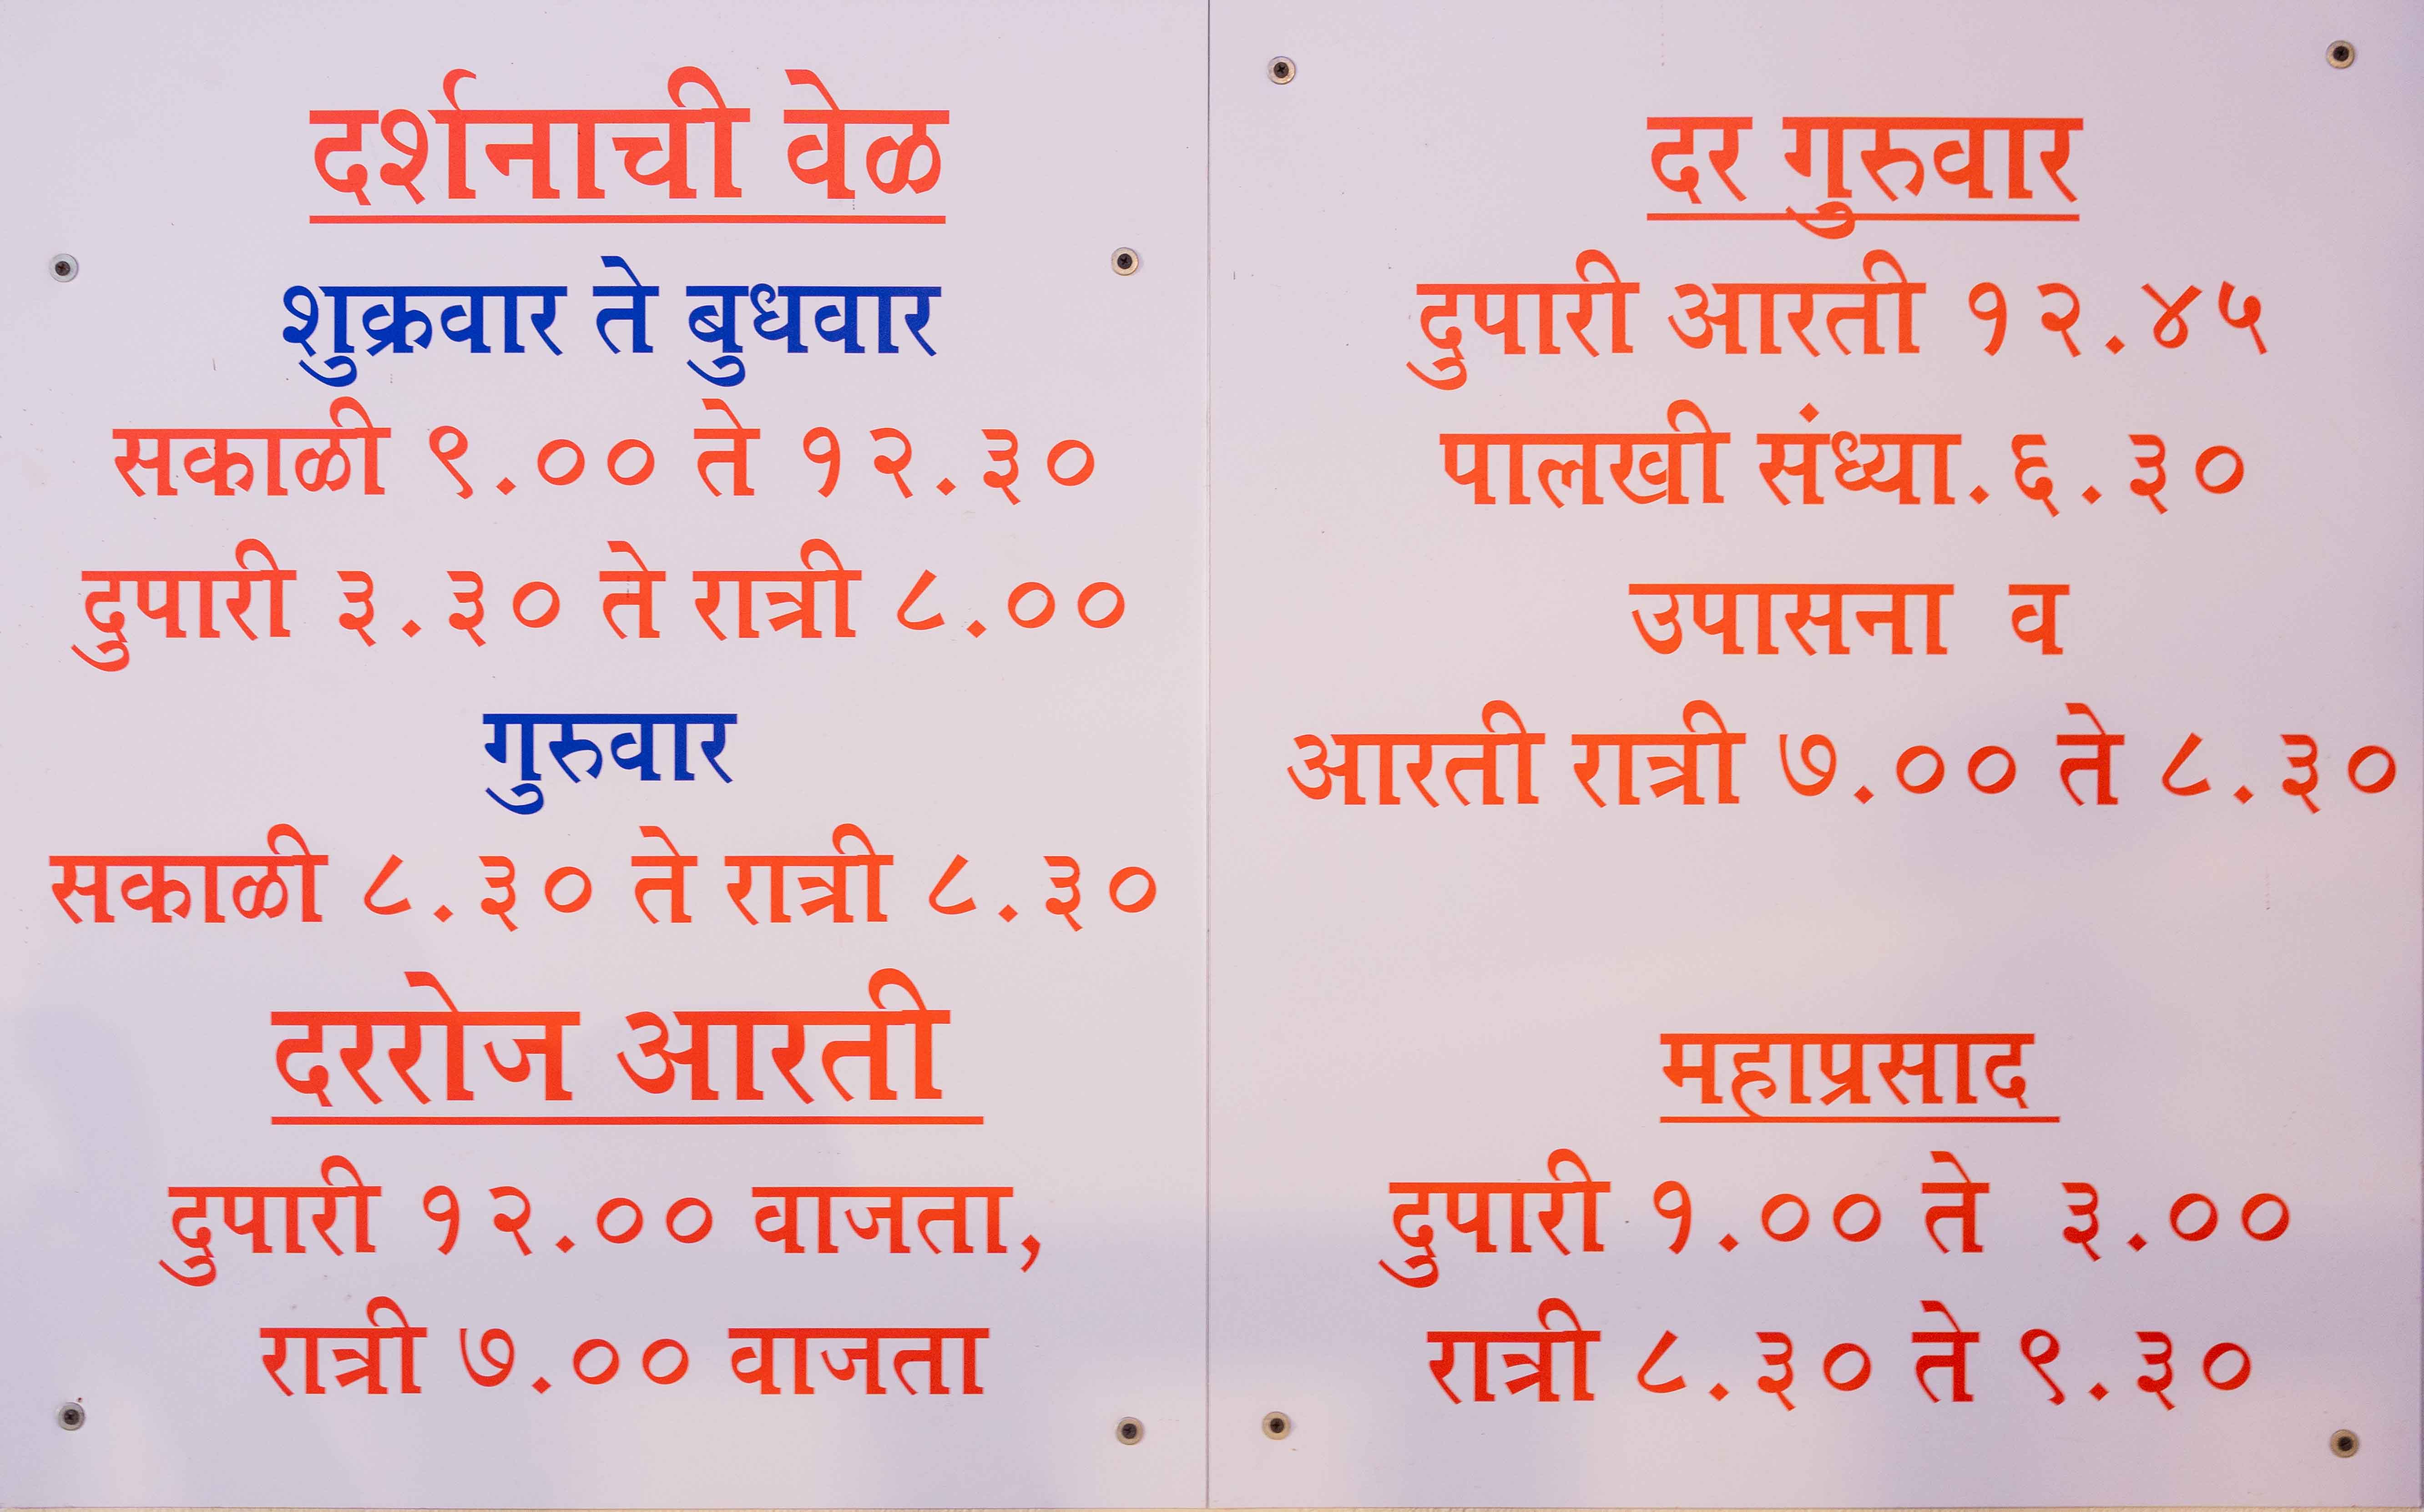 दर्शनाची वेळ
शुक्रवार ते बुधवार
सकाळी ९.०० ते १२.३०
दुपारी ३.३० ते रात्री ८.००
गुरुवार
सकाळी ८.३० ते रात्री ८.३०
दररोज आरती
दुपारी १२.०० वाजता,
रात्री ७.०० वाजता
दर गुरुवार
दुपारी आरती १२.४५
पालखी संध्या.६.३०
उपासना व
आरती रात्री ७.०० ते ८.३०
महाप्रसाद
दुपारी १.०० ते ३.००
रात्री ८.३० ते ९.३०